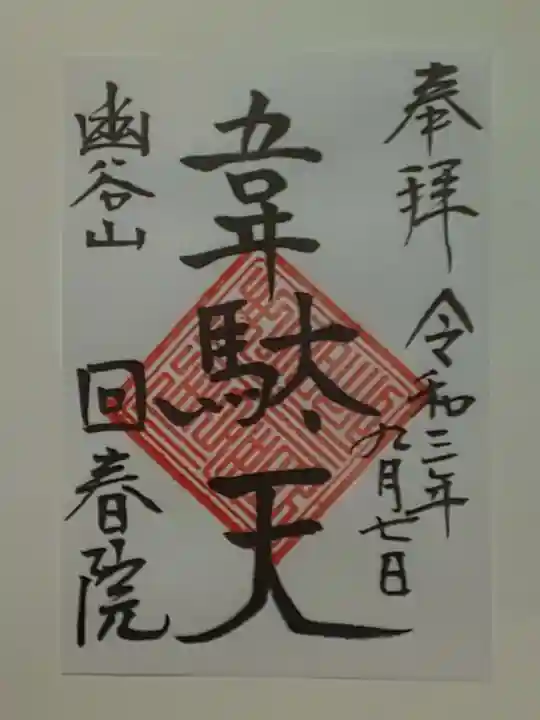 奉拝
令和三年
九月七日
韋駄天
幽谷山
回春院